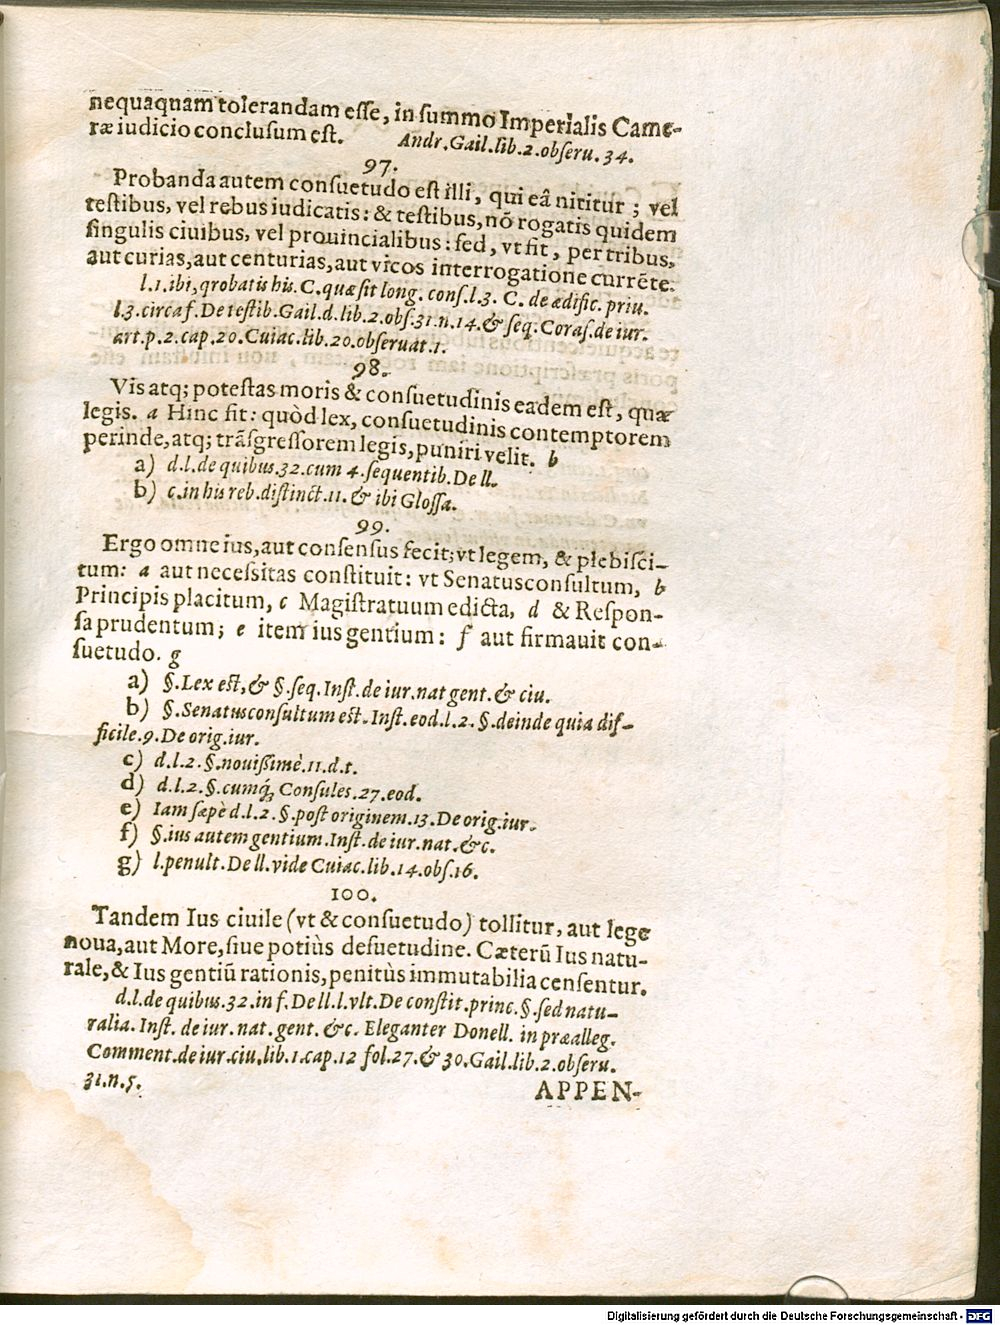 nequaquam tolerandam esse, in summo Imperialis Came-
ræ iudicio conclusum est. Andr. Gail. lib. 2. obseru. 34.
97.
Probanda autem consuetudo est illi, qui eâ nititur; vel
testibus, vel rebus iudicatis: & testibus, nō rogatis quidem
singulis ciuibus, vel prouincialibus: sed, vt fit, per tribus,
aut curias, aut centurias, aut vicos interrogatione currēte.
l. 1. ibi, qrobatis his. C. quæ sit long. cons. l. 3. C. de ædific. priu.
l. 3. circa f. De testib. Gail. d. lib. 2. obs. 31. n. 14. & seq. Coras. de iur.
art. p. 2. cap. 20. Cuiac. lib. 20. obseruat. 1.
98.
Vis atq; potestas moris & consuetudinis eadem est, quæ
legis. a Hinc fit: quòd lex, consuetudinis contemptorem
perinde, atq; trāsgressorem legis, puniri velit. b
a) d. l. de quibus. 32. cum 4. sequentib. De ll.
b) c. in his reb. distinct. 11. & ibi Glossa.
99.
Ergo omne ius, aut consensus fecit; vt legem, & plebisci-
tum: a aut necessitas constituit: vt Senatusconsultum, b
Principis placitum, c Magistratuum edicta, d & Respon-
sa prudentum; e item ius gentium: f aut firmauit con-
suetudo. g
a) §. Lex est, & §. seq. Inst. de iur. nat gent. & ciu.
b) §. Senatusconsultum est. Inst. eod. l. 2. §. deinde quia dif-
ficile. 9. De orig. iur.
c) d. l. 2. §. nouissimè. 11. d. t.
d) d. l. 2. §. cumq́; Consules. 27. eod.
e) Iam sæpè d. l. 2. §. post originem. 13. De orig. iur.
f) §. ius autem gentium. Inst. de iur. nat. &c.
g) l. penult. De ll. vide Cuiac. lib. 14. obs. 16.
100.
Tandem Ius ciuile (vt & consuetudo) tollitur, aut lege
noua, aut More, siue potiùs desuetudine. Cæterũ Ius natu-
rale, & Ius gentiũ rationis, penitùs immutabilia censentur.
d. l. de quibus. 32. in f. De ll. l. vlt. De constit. princ. §. sed natu-
ralia. Inst. de iur. nat. gent. &c. Eleganter Donell. in præalleg.
Comment. de iur. ciu. lib. 1. cap. 12 fol. 27. & 30. Gail. lib. 2. obseru.
31. n. 5.
APPEN-
Digitalisierung gefördert durch die Deutsche Forschungsgemeinschaft - DFG